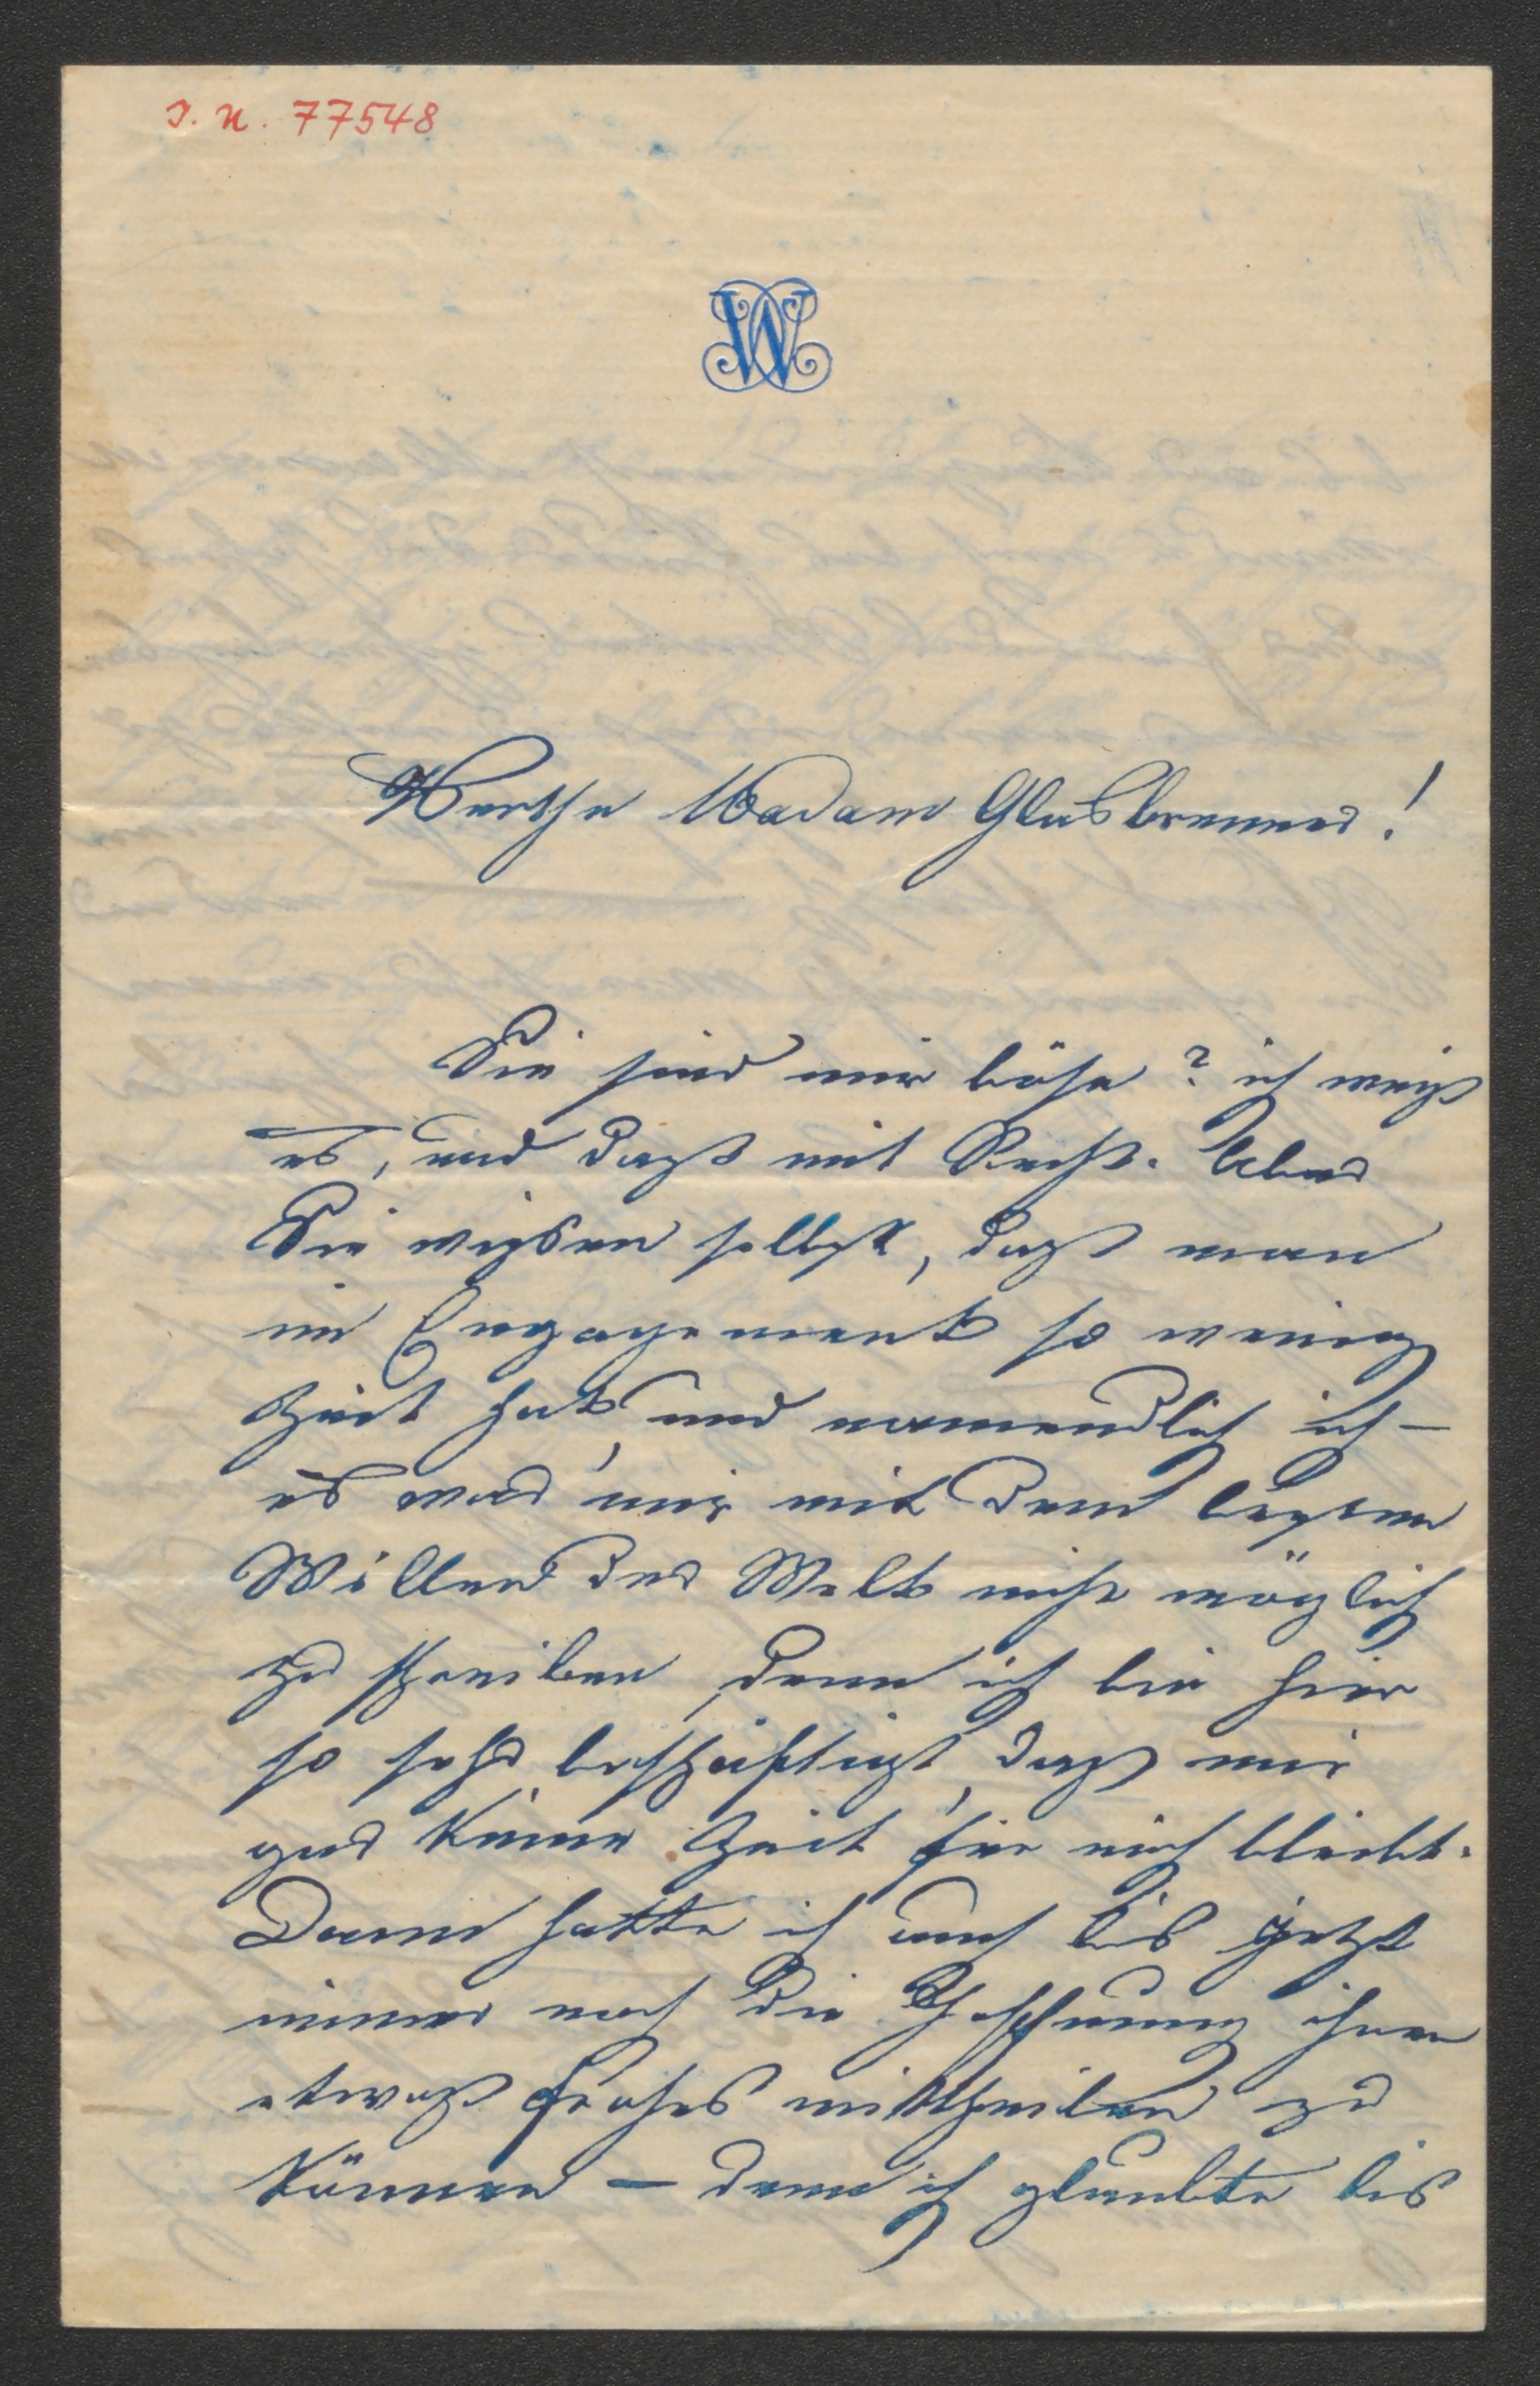 I. N. 77548
W
Werthe Madam Glasbrenner!
Sie sind mir böse? ich weiß
es, und daß mit Recht. Aber
Sie wißen selbst, daß man
im Engagement so wenig
Zeit hat, und namendlich ich –
es war mir mit dem besten
Willen der Welt nicht möglich
zu schreiben, denn ich bin hier
so sehr beschäftigt, daß mir
gar keine Zeit für mich bleibt.
Dann hatte ich auch bis jetzt
immer noch die Hoffnung ihnen
etwaß frohes mittheilen zu
können – denn ich glaubte bis